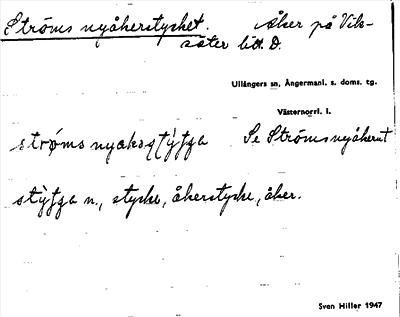 Ströms nyåkerstycket. Åker på Vik-
säter litt. D.
Ullångers sn, Ångermanl. s. doms. tg.
Västernorrl. l.
Se Ströms nyåkern
n., stycke, åkerstycke, åker.
Sven Hiller 1947